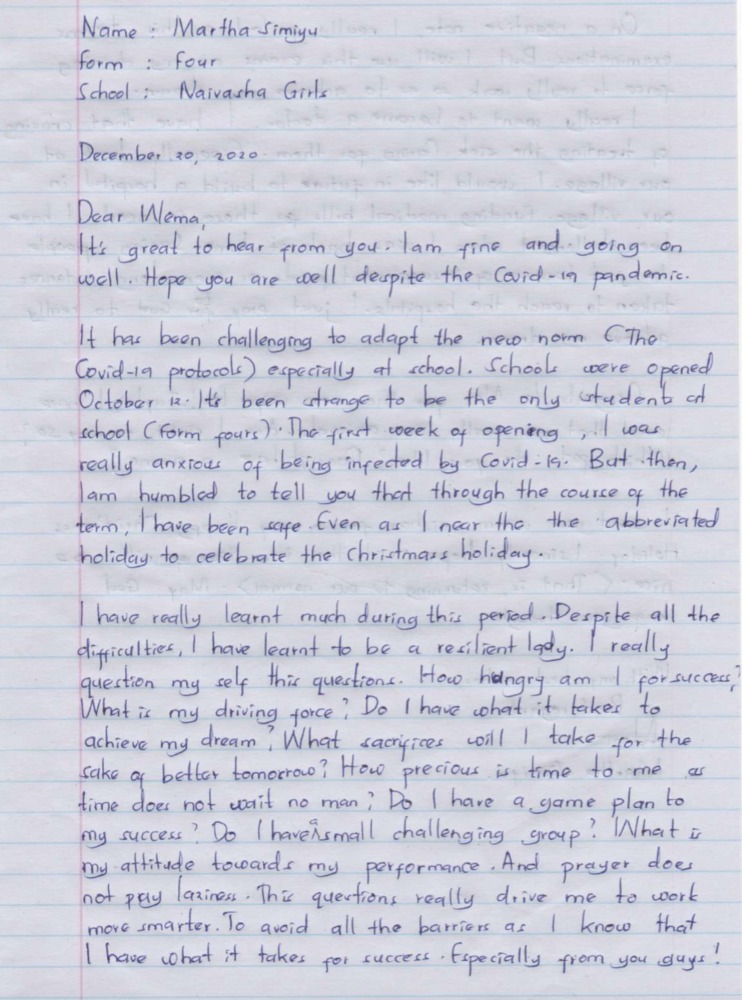 Name : Martha Simiyu
Form : Four
School : Naivasha Girls
December 20, 2020
Dear Wema,
It's great to hear from you. I am fine and going on
well. Hope you are well despite the Covid-19 pandemic.
It has been challenging to adapt the new norm (The
Covid-19 protocols) especially at school. Schools were opened
October 12. It's been strange to be the only students at
school (form fours). The first week of opening, I was
really anxious of being infected by Covid-19. But then,
I am humbled to tell you that through the course of the
term, I have been safe. Even as I near the the abbreviated
holiday to celebrate the Christmass holiday.
I have really learnt much during this period. Despite all the
difficulties, I have learnt to be a resilient lady. I really
question my self this questions. How hungry am I for success?
What is my driving force? Do I have what it takes to
achieve my dream? What sacrifices will I take for the
sake of better tomorrow? How precious is time to me as
time does not wait no man? Do I have a game plan to
my success? Do I have a small challenging group? What is
my attitude towards my performance. And prayer does
not pay laziness. This questions really drive me to work
more smarter. To avoid all the barriers as I know that
I have what it takes for success. Especially from you guys!